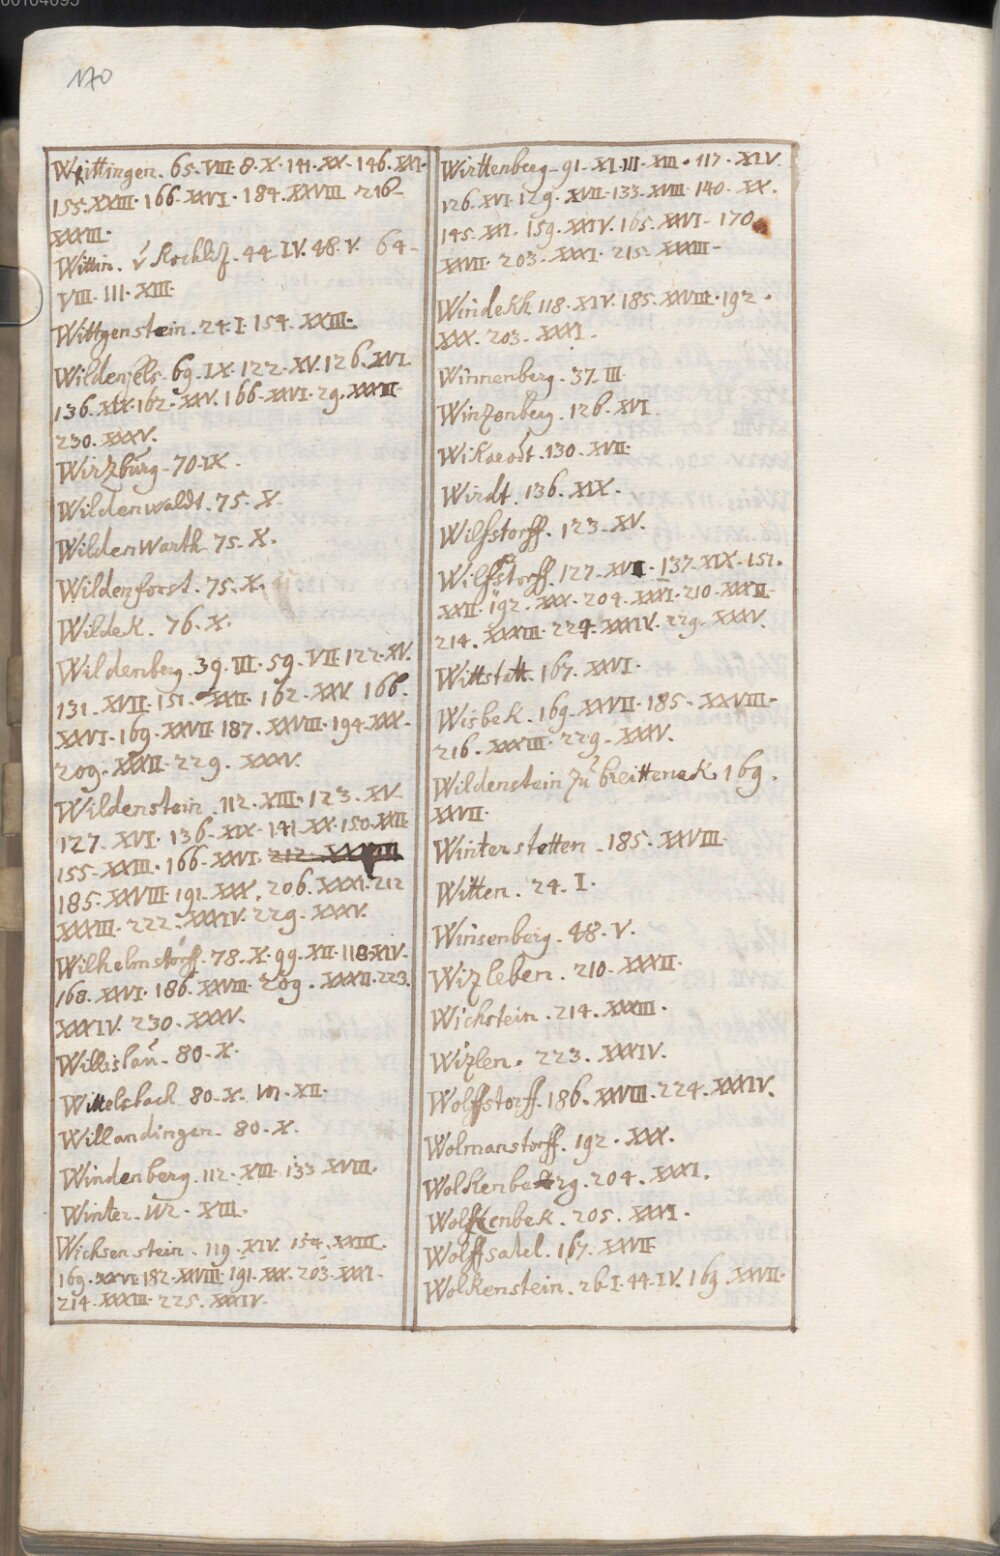 00104095
170
Wittingen. 65. VIII. 8. X. 141. XX. 146. XXI.
155. XXIII. 166. XXVI. 184. XXVIII. 216.
XXXIII.
Wittin. v Rochliz. 44. IV. 48. V. 64.
VIII. 111. XIII.
Wittgenstein. 24. I. 154. XXIII.
Wildenfels. 69. IX. 122. XV. 126. XVI.
136. XIX. 162. XXV. 166. XXVI. 29. XXXII
230. XXXV.
Wirzburg. 70. IX.
Wildenwaldt. 75. X.
Wildenwarth. 75. X.
Wildenforst. 75. X.
Wildek. 76. X.
Wildenberg. 39. III. 59. VII. 122. XV.
131. XVII. 151. XXII. 162. XXV. 166.
XXVI. 169. XXVII. 187. XXVIII. 194. XXX.
209. XXXII. 229. XXXV.
Wildenstein. 112. XIII. 123. XV.
127. XVI. 136. XIX. 141. XX. 150. XXII
155. XXIII. 166. XXVI. 212. XXXIII
185. XXVIII. 191. XXX. 206. XXXI. 212
XXXIII. 222. XXXIV. 229. XXXV.
Wilhelmstorff. 78. X. 99. XII. 118. XIV.
168. XXVI. 186. XXVIII. 209. XXXII. 223.
XXXIV. 230. XXXV.
Willislau. 80. X.
Wittelsbach. 80. X. 101. XII.
Willandingen. 80. X.
Windenberg. 112. XIII. 133. XVIII.
Winter. 112. XIII.
Wichsenstein. 119. XIV. 154. XXIII.
169. XXVI. 182. XXVIII. 191. XXX. 203. XXXI.
214. XXXIII. 225. XXXIV.
Wirttenberg. 91. XI. III. XIII. 117. XIV.
126. XVI. 129. XVII. 133. XVIII. 140. XX.
145. XXI. 159. XXIV. 165. XXVI. 170.
XXVII. 203. XXXI. 215. XXXIII.
Windekh. 118. XIV. 185. XXVIII. 192.
XXX. 203. XXXI.
Winnenberg. 37. III.
Winzenberg. 126. XVI.
130. XVII.
Wirdt. 136. XIX.
Wilfstorff. 123. XV.
Wilfstorff. 127. XVI. 137. XIX. 151.
XXII. 192. XXX. 204. XXXI. 210. XXXII.
214. XXXIII. 224. XXXIV. 229. XXXV.
Wittstatt. 167. XXVI.
Wisbek. 169. XXVII. 185. XXVIII.
216. XXXIII. 229. XXXV.
Wildenstein zu breittenek. 169.
XXVII.
Winterstetten. 185. XXVIII.
Witten. 24. I.
Winsenberg. 48. V.
Wizleben. 210. XXXII.
Wichstein. 214. XXXIII.
Wizlen. 223. XXXIV.
Wolffstorff. 186. XXVIII. 224. XXXIV.
Wolmanstorff. 192. XXX.
Wolkenberg. 204. XXXI.
Wolkenbek. 205. XXXI.
Wolffsatel. 167. XXVII
Wolkenstein. 26. I. 44. IV. 169. XXVII.